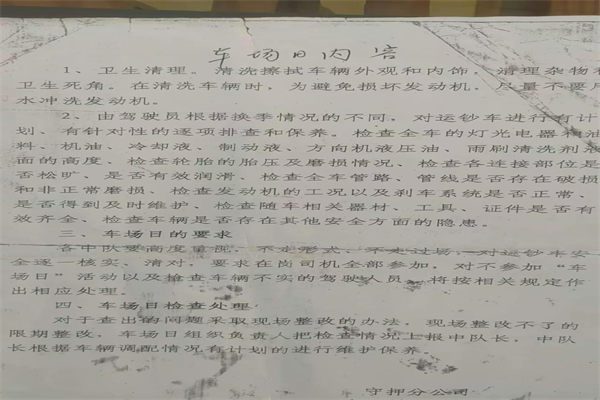 车场日内容
1、卫生清理。清洗擦拭车辆外观和内饰，清理杂物和
卫生死角。在清洗车辆时，为避免损坏发动机，尽量不要用
水冲洗发动机。
2、由驾驶员根据换季情况的不同，对运钞车进行有计
划、有针对性的逐项排查和保养。检查全车的灯光电器和油
料、机油、冷却液、制动液、方向机液压油、雨刷清洗剂液
面的高度、检查轮胎的胎压及磨损情况、检查各连接部位是
否松旷、是否有效润滑、检查全车管路、管线是否存在破损
和非正常磨损、检查发动机的工况以及刹车系统是否正常、
是否得到及时维护、检查随车相关器材、工具、证件是否有
效齐全、检查车辆是否存在其他安全方面的隐患。
三、车场日的要求
各中队要高度重视，不走形式、不走过场，对运钞车安
全逐一核实、清对，要求在岗司机全部参加，对不参加“车
场日”活动以及检查车辆不实的驾驶人员，将按相关规定作
出相应处理。
四、车场日检查处理
对于查出的问题采取现场整改的办法，现场整改不了的
限期整改，车场日组织负责人把检查情况上报中队长，中队
长根据车辆调配情况有计划的进行维护保养
守押分公司